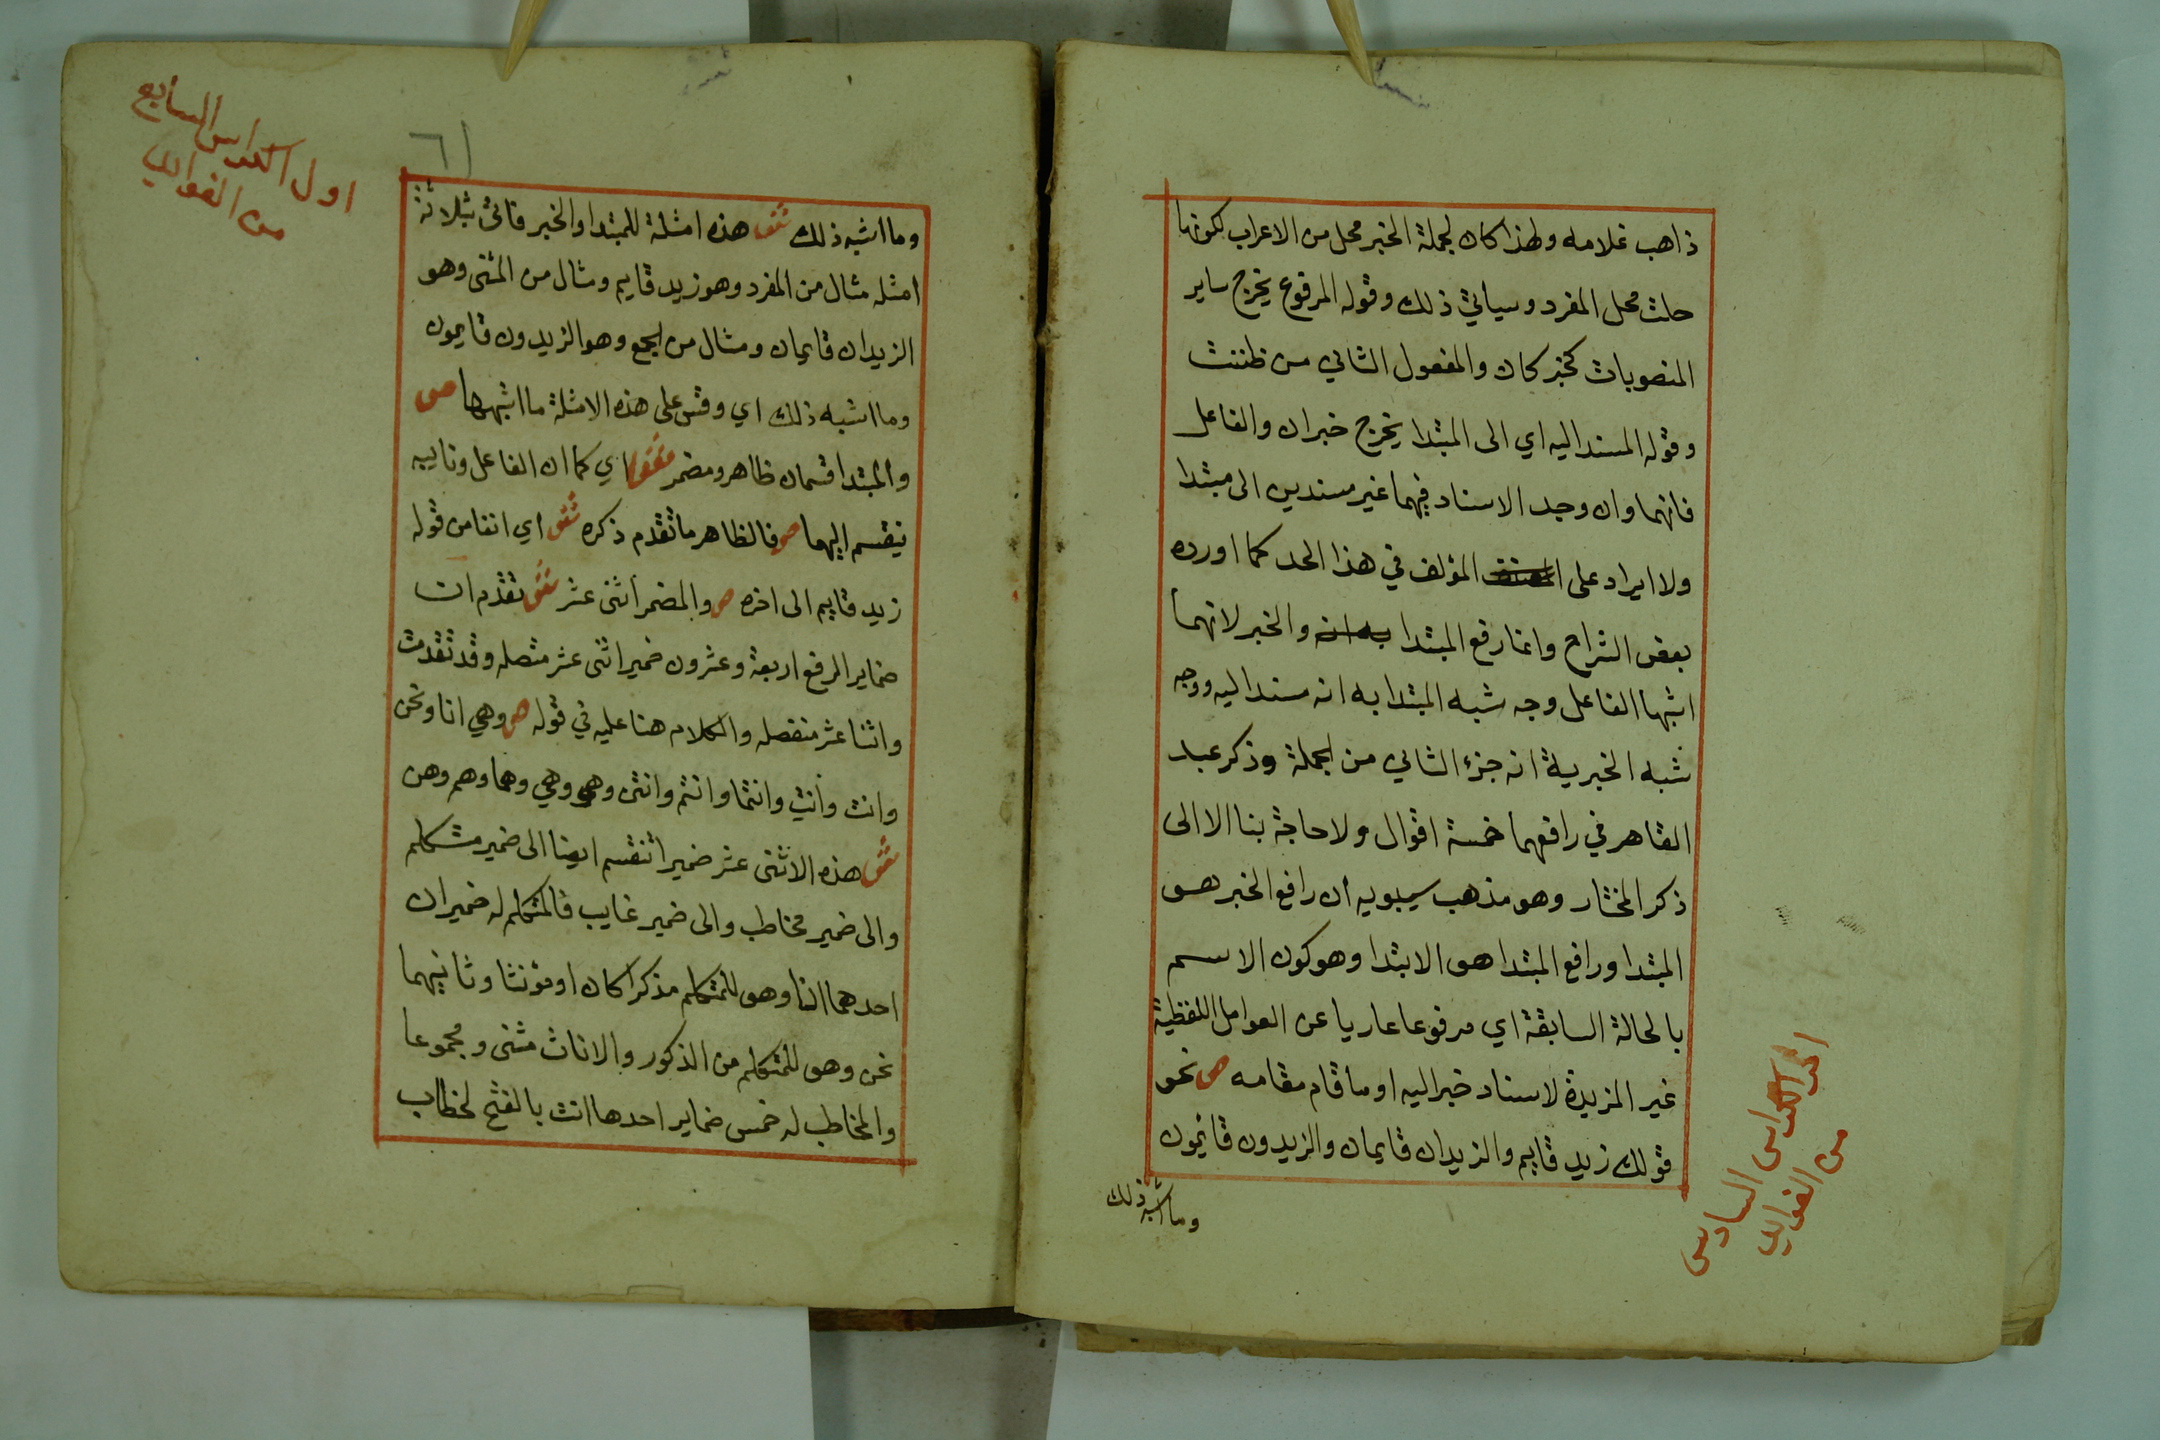 ذاهب غلامه ولهذا كان لجملة الخبر محل من الاعراب لكونها
حلت محل المفرد وسيأتي ذلك وقوله المرفوع يخرج ساير
المنصوبات كخبر كان والمفعول الثاني من ظننت
وقوله المسند اليه اي الى المبتدا يخرج خبر ان والفاعل
فانهما وان وجد الاسناد فيهما غير مسندين الى مبتدا
ولا ايراد على المصنف المؤلف في هذا الحد كما اورده
بعض الشراح وانما رفع المبتدا به انه والخبر لانهما
اشبها الفاعل وجه شبه المبتدا به انه مسند اليه ووجه
شبه الخبر به انه جزء الثاني من الجملة وذكر عبد
القاهر في رافعهما خمسة اقوال ولا حاجة بنا الا الى
ذكر المختار وهو مذهب سيبويه ان رافع الخبر هو
المبتدا ورافع المبتدا هو الابتدا وهو كون الاسم
بالحالة السابقة اي مرفوعا عاريا عن العوامل اللفظية
غير المزيدة لاسناد خبر اليه او ما قام مقامه ص نحو
قولك زيد قايم والزيدان قايمان والزيدون قائمون
وما اشبه ذلك
اخر الكراس السادس
من الفواكه
اول الكراس السابع
من الفواكه
٦١
وما اشبه ذلك ش هذه امثلة للمبتدا والخبر فاتى بثلاثة
امثله مثال من المفرد وهو زيد قايم ومثال من المثنى وهو
الزيدان قايمان ومثال من الجمع وهو الزيدون قايمون
وما اشبه ذلك اي وقس على هذه الامثلة ما اشبهها ص
والمبتدا قسمان ظاهر ومضمر ش اي كما ان الفاعل ونايبه
ينقسم اليهما ص فالظاهر ما تقدم ذكره ش اي انفا من قوله
زيد قايم الى اخره ص والمضمر اثنى عشر ش تقدم ان
ضماير الرفع اربعة وعشرون ضميرا اثنى عشر متصله وقد تقدمت
واثنا عشر منفصله والكلام هنا عليه في قوله ص وهي انا ونحن
وانت وانتِ وانتما وانتم وانتن وهو وهي وهما وهم وهن
ش هذه الاثنى عشر ضميرا تنقسم ايضا الى ضمير متكلم
والى ضمير مخاطب والى ضمير غايب فالمتكلم له ضميران
احدهما انا وهو للمتكلم مذكرا كان او مؤنثا وثانيهما
نحن وهو للمتكلم من الذكور والاناث مثنى ومجموعا
والمخاطب له خمس ضماير احدها انت بالفتح لخطاب